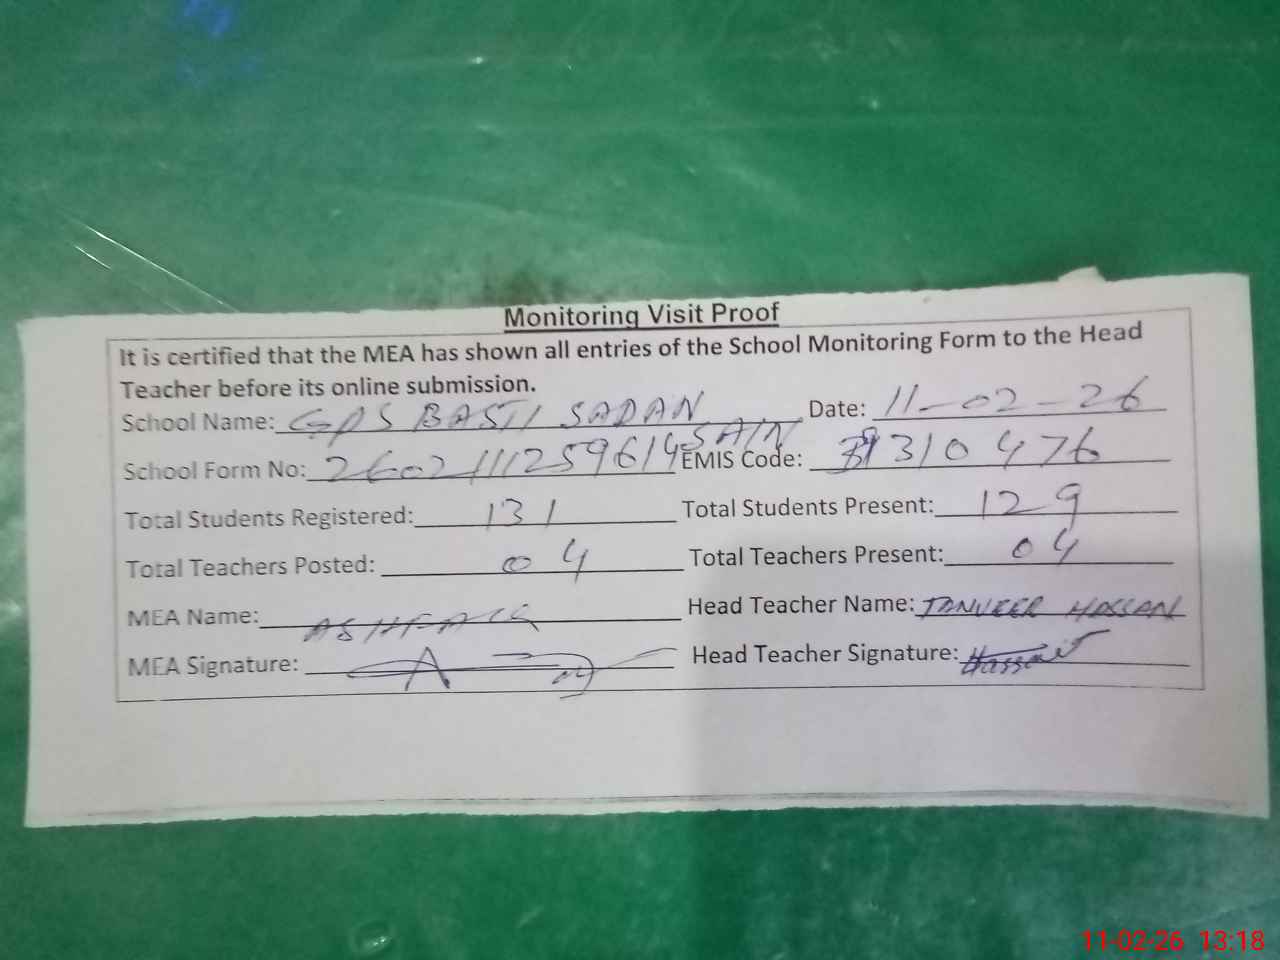 Monitoring Visit Proof
It is certified that the MEA has shown all entries of the School Monitoring Form to the Head
Teacher before its online submission.
School Name: GPS BASTI SADAN SAIN Date: 11-02-26
School Form No: 2602111259614 EMIS Code: 31310476
Total Students Registered: 131 Total Students Present: 129
Total Teachers Posted: 04 Total Teachers Present: 04
MEA Name: ASHFAQ Head Teacher Name: TANVEER HASSAN
MEA Signature: Head Teacher Signature: Hassan
11-02-26 13:18